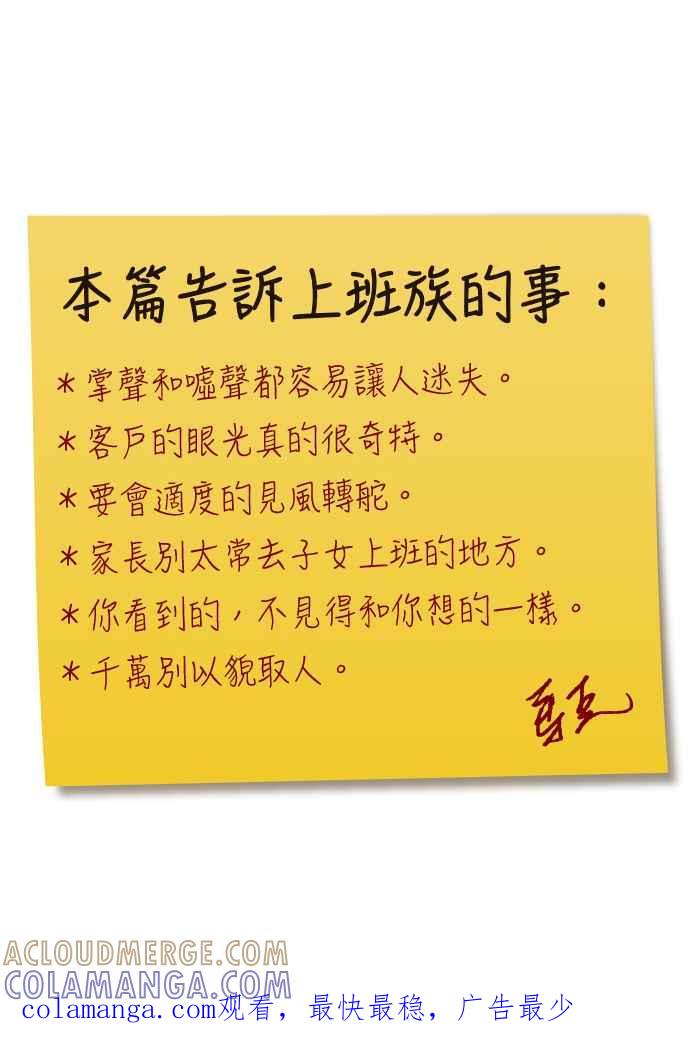 本篇告訴上班族的事：
*掌聲和噓聲都容易讓人迷失。
*客戶的眼光真的很奇特。
*要會適度的見風轉舵。
*家長別太常去子女上班的地方。
*你看到的，不見得和你想的一樣。
*千萬別以貌取人。
ACLOUDMERGE.COM
COLAMANGA.COM
colamanga.com观看，最快最稳，广告最少